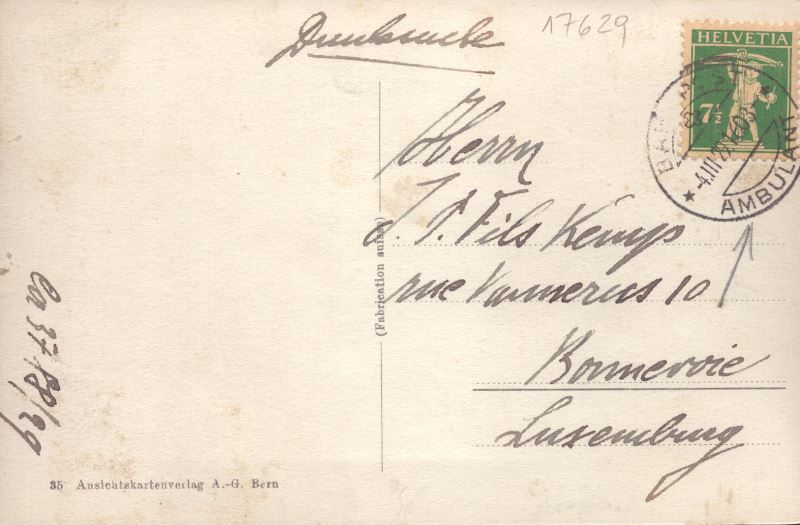 Drucksache
17629
HELVETIA
7½
AMBULANT
Herrn
J. P. Fils Kemp
rue Vannerus 10
Bonnevoie
Luxemburg
(Fabrication suisse)
35 Ansichtskartenverlag A.-G. Bern